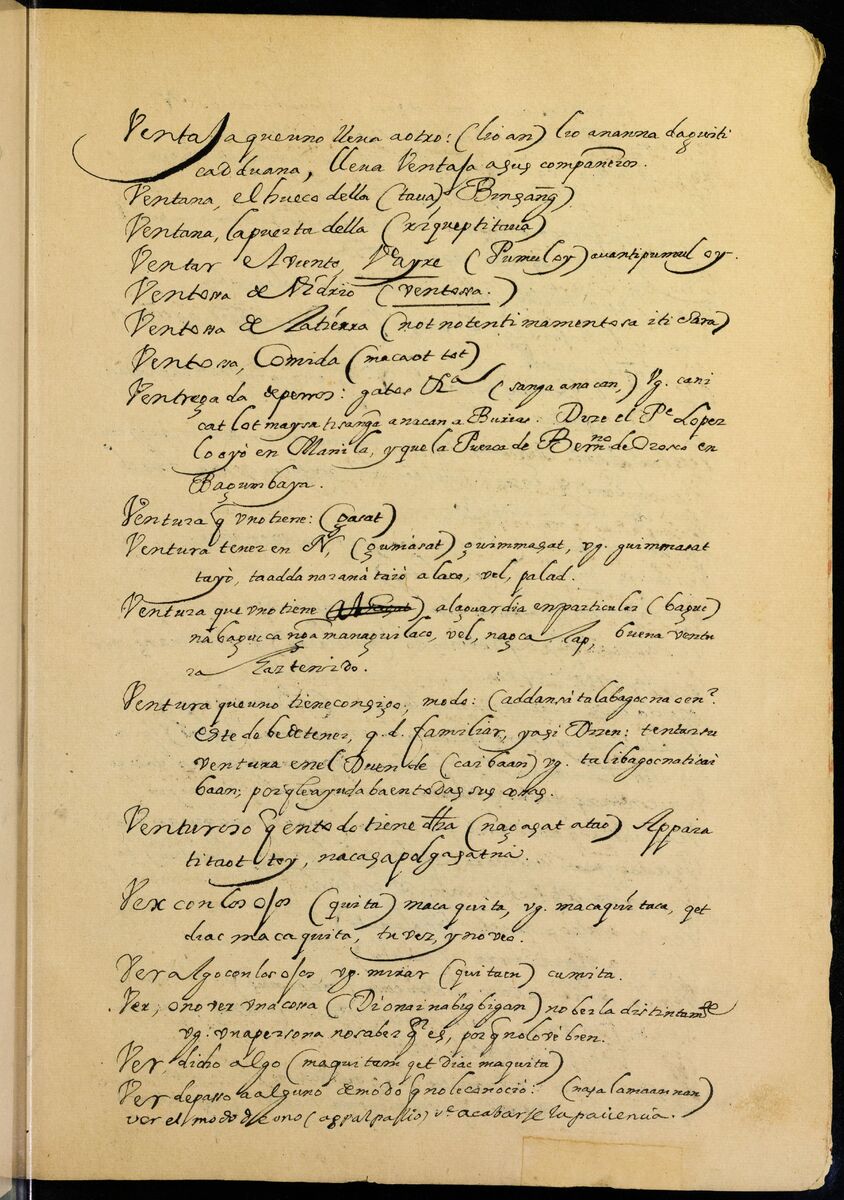 Ventaja que uno lleva a otro: (lio an) lio ananna dagviti
cadduana, lleva Ventaja a sus compañeros.
Ventana, el hueco della (tava) Bingãng)
Ventana, la puerta della (ríqueptitava)
Ventar el viento, Vᵉ ayre (Pumul oy) avantipumul oy.
Ventossa de Vidrio (ventossa.)
Ventossa de la tierra (not no tenti mamentosa iti Sara)
Ventosa, Comida (macaot tot)
Ventregada de perros: gatos &ᵃ (sanga anacan,) vg. cani
cat lot maysa ti sanga anacan a Buxias. Dize el Pᵉ Lopez
lo oyò en Manila, y que la Puerca de Bernⁿᵒ de Orosco en
Bagumbaya.
Ventura q̃ uno tiene: (gasat)
Ventura tener en N, (gumásat) guimmasat, vg. guimmasat
tayò, ta adda naraná taió a laco, vel, palad.
Ventura que uno tiene ) a la guardia en particular (bague)
nabaguec ca nga managuilaco, vel, nagca buena ventu
ra haz tenido.
Ventura que uno tiene consigo, modo: (addansá talabagocna
este dobe de tener, q. d. familiar, y asi Dizen: tentarsu
ventura en el Duende (caibaan) vg. talibagocnaticai
baan; porq̃ le ayuda ba en todas sus cosas.
Venturoso q̃ en todo tiene dha (nagasat a tao) Appaia
titaot toy, nacasapolgasatna.
Ver con los ojos (quita) maca quita, vg. macaquitaca, qet
diac maca quita, tu vez, y no veo.
Ver algo con los ojos, vg. mirar (quitaen) cumita.
Ver, o no ver una cossa (Dionainabigbigan) no berla distintamᵗᵉ
vg. una persona no saber qⁿ es, por q̃ no lo vè bien.
Ver, dicho algo (maquitam qet diac maquita)
Ver de passo a alguno de modo q̃ no le conociò: (nasalamaannan)
ver el modo de uno (agpalpallio) vᵉ acabarse la paciencia.